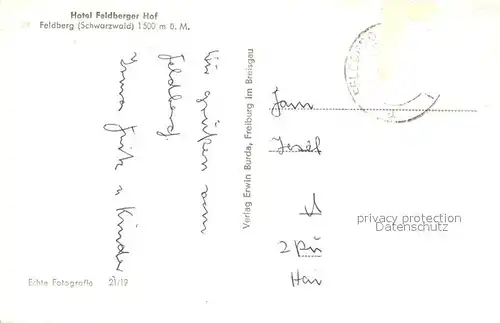 Hotel Feldberger Hof
Feldberg (Schwarzwald) 1500 m ü. M.
Wir grüßen vom
Feldberg.
Fritz u Kinder
Verlag Erwin Burda, Freiburg im Breisgau
FELDBERG
Fam
Josef
privacy protection
Datenschutz
Echte Fotografie 21/19